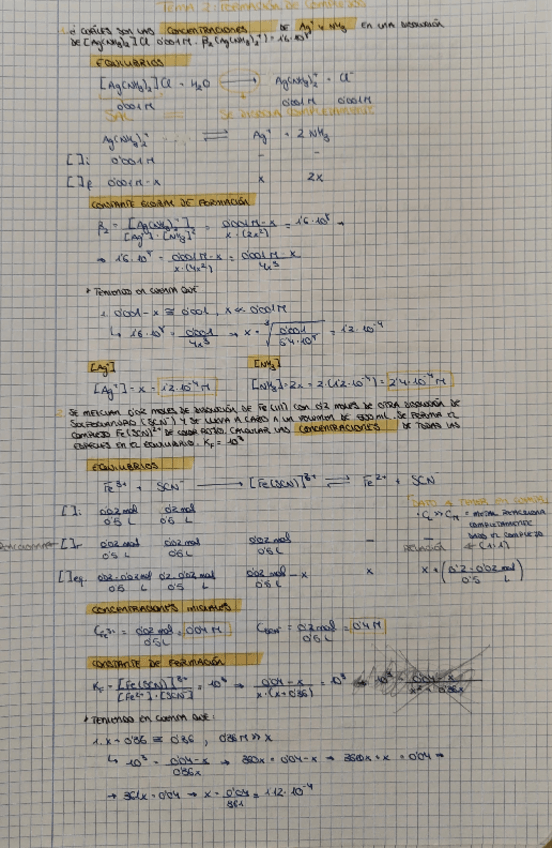 TEMA 2: FORMACIÓN DE COMPLEJOS
1. ¿CUÁLES SON LAS CONCENTRACIONES DE Ag⁺ Y NH₃ EN UNA DISOLUCIÓN
DE [Ag(NH₃)₂]Cl 0'001 M. β₂(Ag(NH₃)₂⁺) = 1'6·10⁸
EQUILIBRIOS
[Ag(NH₃)₂]Cl + H₂O → Ag(NH₃)₂⁺ + Cl⁻
0'001M 0'001 M 0'001M
SAL = SE DISOCIA COMPLETAMENTE
Ag(NH₃)₂⁺ ⇌ Ag⁺ + 2 NH₃
[ ]i 0'001 M - -
[ ]f 0'001 M-x x 2x
CONSTANTE GLOBAL DE FORMACIÓN
β₂ = [Ag(NH₃)₂⁺] / [Ag⁺]·[NH₃]² = 0'001 M-x / x·(2x²) = 1'6·10⁸ →
→ 1'6·10⁸ = 0'001 M-x / x·(4x²) = 0'001 M-x / 4x³
* TENIENDO EN CUENTA QUE
1. 0'001-x ≅ 0'001, x << 0'001 M
↳ 1'6·10⁸ = 0'001 / 4x³ → x = ³√(0'001 / 6'4·10⁸) = 1'2·10⁻⁴
[Ag⁺] [NH₃]
[Ag⁺] = x = 1'2·10⁻⁴ M [NH₃] = 2x = 2·(1'2·10⁻⁴) = 2'4·10⁻⁴ M
2. SE MEZCLAN 0'02 MOLES DE DISOLUCIÓN DE Fe(III) CON 0'2 MOLES DE OTRA DISOLUCIÓN DE
(SCN⁻) Y SE LLEVA A CABO A UN VOLUMEN DE 500 ML. SE FORMA EL
COMPLEJO Fe(SCN)²⁺ DE COLOR ROJO. CALCULAR LAS CONCENTRACIONES DE TODAS LAS
ESPECIES EN EL EQUILIBRIO. Kf = 10³
EQUILIBRIOS
Fe³⁺ + SCN⁻ → [Fe(SCN)]²⁺ ⇌ Fe³⁺ + SCN⁻
DATO A TENER EN CUENTA
· CL >> CM = METAL REACCIONA
COMPLETAMENTE
[ ]i 0'02 mol / 0'5 L 0'2 mol / 0'5 L
RELACIÓN (1:1)
[ ]r 0'02 mol / 0'5 L 0'02 mol / 0'5 L 0'02 mol / 0'5 L - -
[ ]eq 0'02-0'02 mol / 0'5 L 0'2-0'02 mol / 0'5 L 0'02 mol / 0'5 L - x x x + (0'2-0'02 mol / 0'5 L)
CONCENTRACIONES INICIALES
CFe³⁺ = 0'02 mol / 0'5 L = 0'04 M CSCN⁻ = 0'2 mol / 0'5 L = 0'4 M
CONSTANTE DE FORMACIÓN
Kf = [Fe(SCN)]²⁺ / [Fe³⁺]·[SCN⁻] = 10³ → 0'04-x / x·(x+0'36) = 10³
* TENIENDO EN CUENTA QUE:
1. x+0'36 ≅ 0'36, 0'36 M >> x
↳ 10³ = 0'04-x / 0'36x → 360x = 0'04-x → 360x+x = 0'04 →
→ 361x = 0'04 → x = 0'04 / 361 = 1'12·10⁻⁴